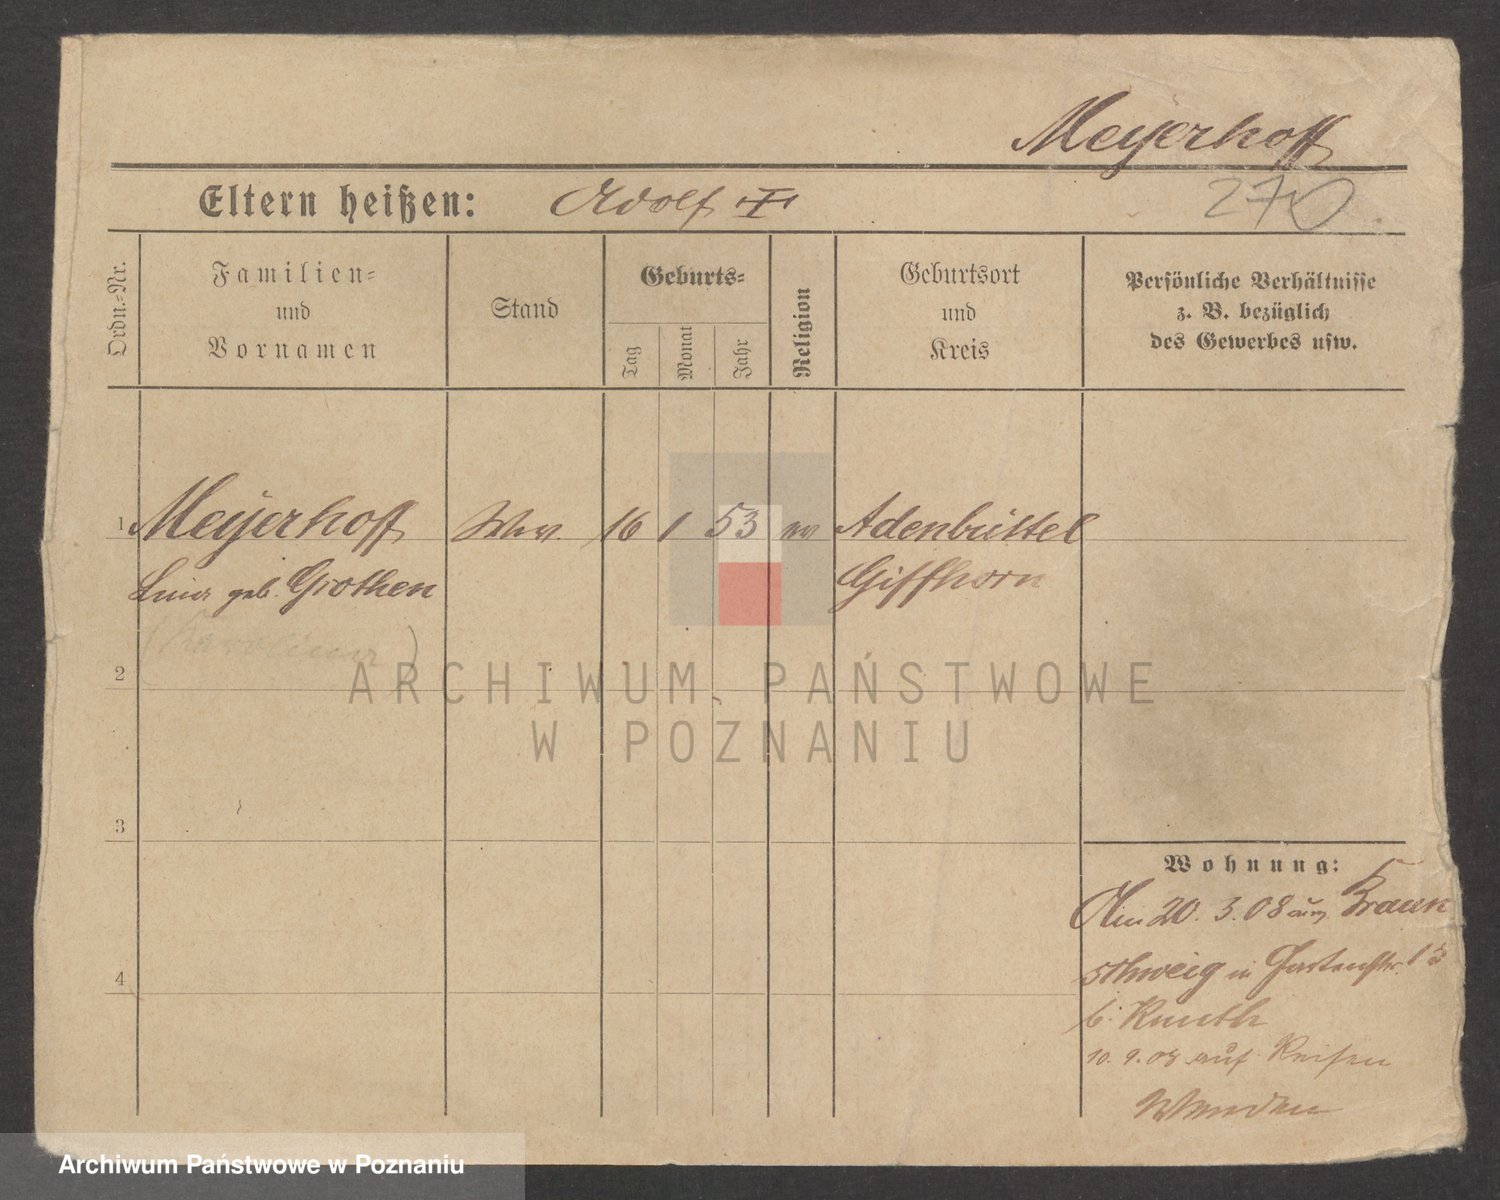 Meyerhoff
Eltern heißen: Adolf
270
Ordn.-Nr.
Familien-
und
Vornamen
Stand
Geburts-
Tag
Monat
Jahr
Religion
Geburtsort
und
Kreis
Persönliche Verhältnisse
z. B. bezüglich
des Gewerbes usw.
1 Meyerhoff Wwe. 16 1 53 ev Adenbüttel
Lina geb. Grothen Giffhorn
(Karolina)
2
3
4
Wohnung:
Am 20. 3. 08 aus Braun
schweig in Gartenstr. 13
b. Knuth
10. 9. 08 auf Reisen
Wenden
ARCHIWUM PAŃSTWOWE
W POZNANIU
Archiwum Państwowe w Poznaniu